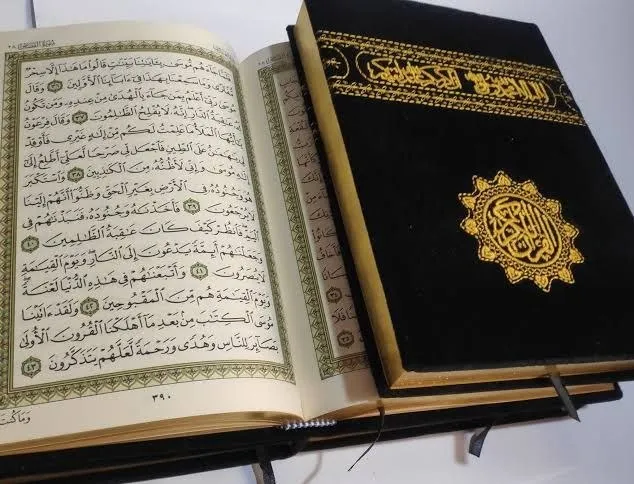 سُورَةُ القَصَصِ ٢٨
فَلَمَّا جَآءَهُم مُّوسَىٰ بِـَٔايَٰتِنَا بَيِّنَٰتٍ قَالُوا۟ مَا هَٰذَآ إِلَّا سِحْرٌ
مُّفْتَرًى وَمَا سَمِعْنَا بِهَٰذَا فِىٓ ءَابَآئِنَا ٱلْأَوَّلِينَ ٣٦ وَقَالَ
مُوسَىٰ رَبِّىٓ أَعْلَمُ بِمَن جَآءَ بِٱلْهُدَىٰ مِنْ عِندِهِۦ وَمَن تَكُونُ
لَهُۥ عَٰقِبَةُ ٱلدَّارِ إِنَّهُۥ لَا يُفْلِحُ ٱلظَّٰلِمُونَ ٣٧ وَقَالَ فِرْعَوْنُ
يَٰٓأَيُّهَا ٱلْمَلَأُ مَا عَلِمْتُ لَكُم مِّنْ إِلَٰهٍ غَيْرِى فَأَوْقِدْ لِى
يَٰهَٰمَٰنُ عَلَى ٱلطِّينِ فَٱجْعَل لِّى صَرْحًا لَّعَلِّىٓ أَطَّلِعُ إِلَىٰٓ
إِلَٰهِ مُوسَىٰ وَإِنِّى لَأَظُنُّهُۥ مِنَ ٱلْكَٰذِبِينَ ٣٨ وَٱسْتَكْبَرَ
هُوَ وَجُنُودُهُۥ فِى ٱلْأَرْضِ بِغَيْرِ ٱلْحَقِّ وَظَنُّوٓا۟ أَنَّهُمْ إِلَيْنَا
لَا يُرْجَعُونَ ٣٩ فَأَخَذْنَٰهُ وَجُنُودَهُۥ فَنَبَذْنَٰهُمْ فِى
ٱلْيَمِّ فَٱنظُرْ كَيْفَ كَانَ عَٰقِبَةُ ٱلظَّٰلِمِينَ ٤٠
وَجَعَلْنَٰهُمْ أَئِمَّةً يَدْعُونَ إِلَى ٱلنَّارِ وَيَوْمَ ٱلْقِيَٰمَةِ
لَا يُنصَرُونَ ٤١ وَأَتْبَعْنَٰهُمْ فِى هَٰذِهِ ٱلدُّنْيَا لَعْنَةً
وَيَوْمَ ٱلْقِيَٰمَةِ هُم مِّنَ ٱلْمَقْبُوحِينَ ٤٢ وَلَقَدْ ءَاتَيْنَا
مُوسَى ٱلْكِتَٰبَ مِنۢ بَعْدِ مَآ أَهْلَكْنَا ٱلْقُرُونَ ٱلْأُولَىٰ
بَصَآئِرَ لِلنَّاسِ وَهُدًى وَرَحْمَةً لَّعَلَّهُمْ يَتَذَكَّرُونَ ٤٣
٣٩٠
وَمَا كُنتَ
القرآن الكريم